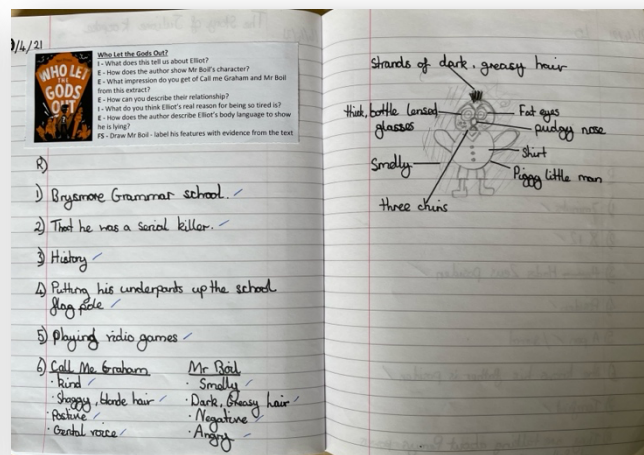 9/4/21
WHO LET
THE
GODS
OUT
Who Let the Gods Out?
I - What does this tell us about Elliot?
E - How does the author show Mr Boil's character?
E - What impression do you get of Call me Graham and Mr Boil
from this extract?
E - How can you describe their relationship?
I - What do you think Elliot's real reason for being so tired is?
E - How does the author describe Elliot's body language to show
he is lying?
FS - Draw Mr Boil - label his features with evidence from the text
R)
1) Brysmore Grammar school.
2) That he was a serial killer.
3) History
4) Putting his underpants up the school
flag pole
5) Playing vidio games
6) Call Me Graham
• Kind
• Shaggy, blonde hair
• Postive
• Gental voice
Mr Boil
• Smelly
• Dark, Greasy hair
• Negative
• Angry
Strands of dark, greasy hair
thick, bottle lensed
glasses
Fat eyes
pudgy nose
Shirt
Smelly
Piggy little man
three chins